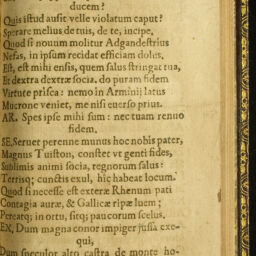 ducem?
Quis istud ausit velle violatum caput?
Sperare melius de tuis, de te, incipe,
Quod si nouum molitur Adgandestrius
Nefas, in ipsum recidat efficiam dolus.
Est, est mihi ensis, quem salus stringat tua,
Et dextra dextræ socia. do puram fidem
Virtute prisca: nemo in Arminij latus
Mucrone veniet, me nisi euerso prius.
AR. Spes ipse mihi sum: nec tuam renuo
fidem,
SE. Seruet perenne munus hoc nobis pater,
Magnus Tuiston, constet vt genti fides,
Sublimis animi socia, regnorum salus:
Terrisq; cunctis exul, hîc habeat locum.
Quod si necesse est exteræ Rhenum pati
Contagia auræ, & Gallicæ ripæ luem;
Pereatq; in ortu, sitq; paucorum scelus.
EX. Dum magna conor impiger jussa exe-
qui,
Dum speculor alto castra de monte ho-